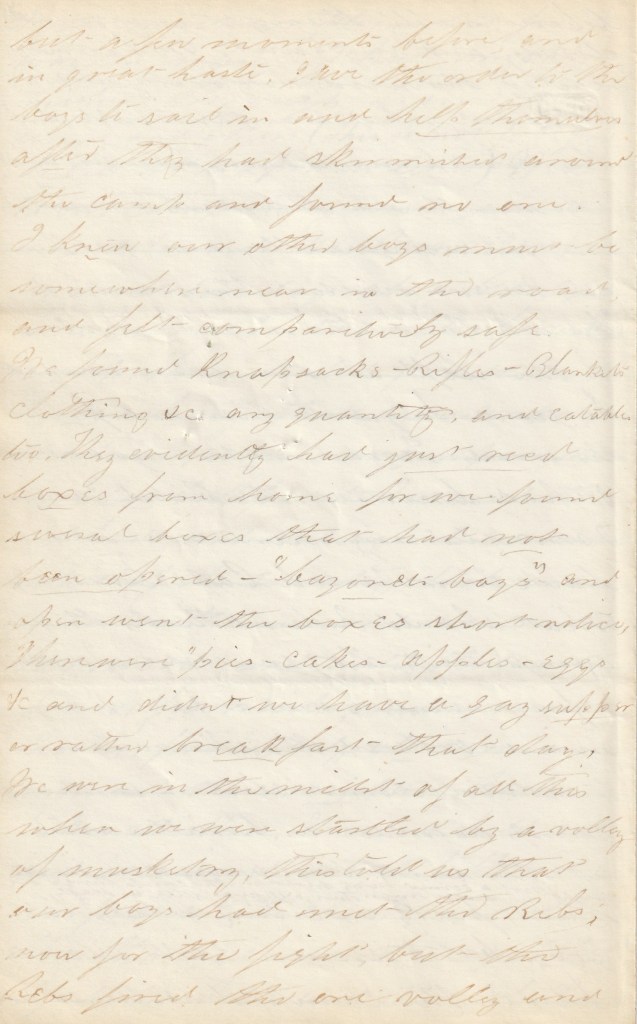 but a few moments before and
in great haste. I gave the order to the
boys to sail in and help themselves
after they had skirmished around
the camp and found no one.
I knew our other boys must be
somewhere near in the road
and felt comparitively safe.
We found Knapsacks - Rifles - Blankets
clothing &c any quantity, and eatables
too. They evidently had just recd
boxes from home for we found
several boxes that had not
been opened - "bayonets boys" and
open went the boxes short notice,
There were "pies - cakes - apples - eggs
&c and didnt we have a gay supper
or rather breakfast that day.
We were in the midst of all this
when we were startled by a volley
of musketry, this told us that
our boys had met the Rebs,
now for the fight, but the
Rebs fired the one volley and